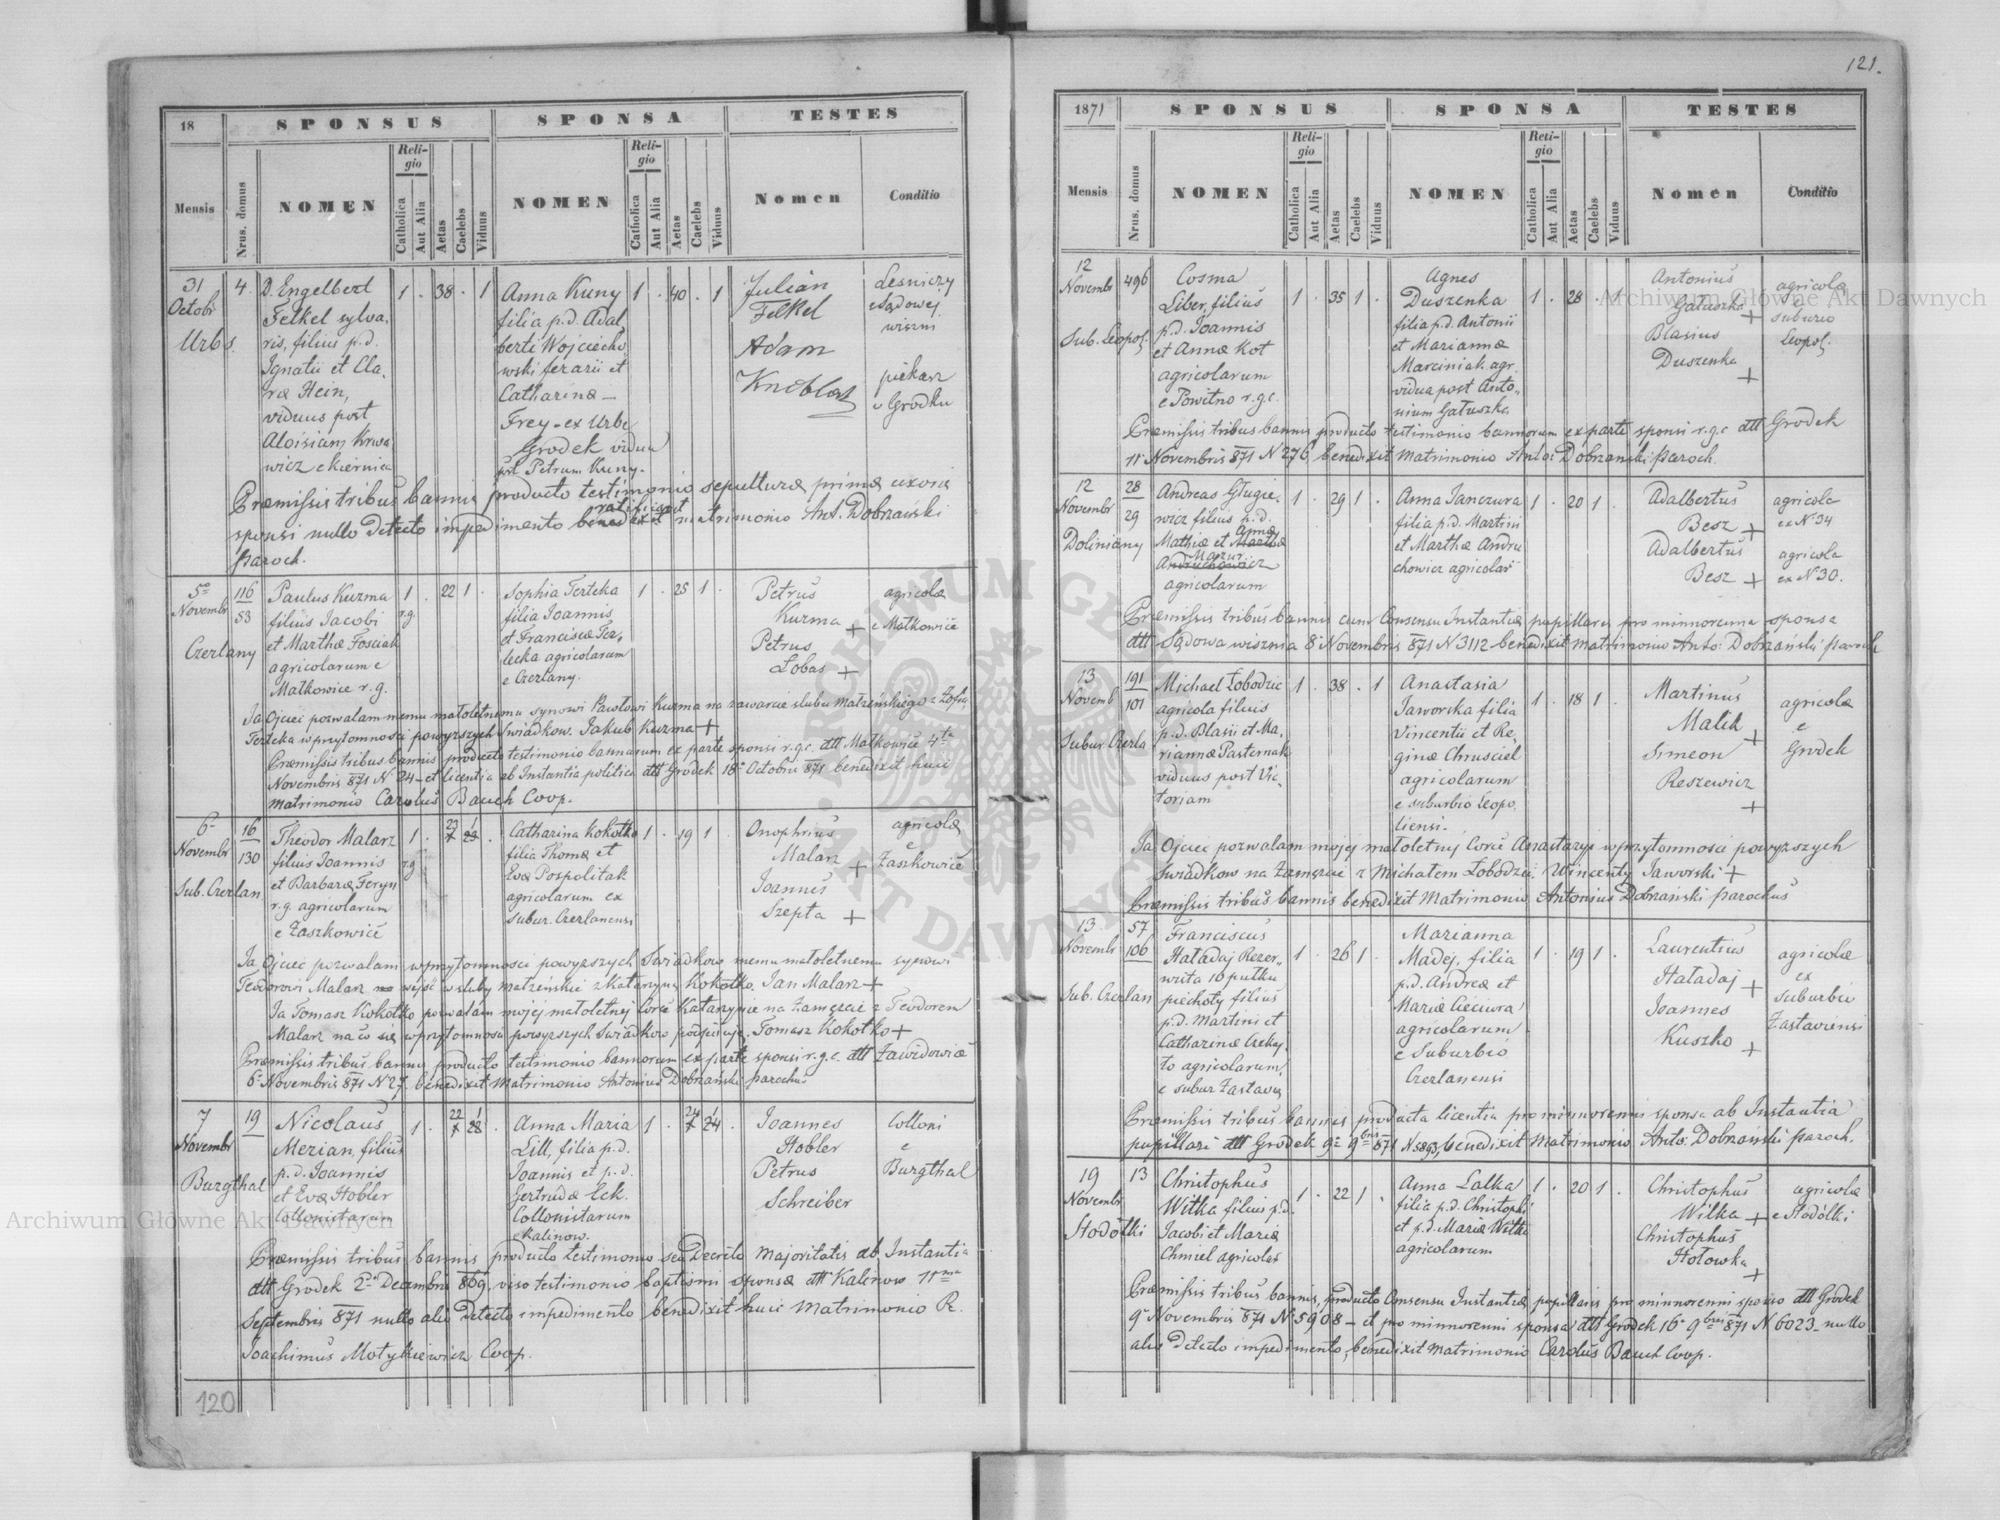 121.
18
SPONSUS
SPONSA
TESTES
Mensis
Nrus. domus
NOMEN
Religio
Catholica
Aut Alia
Aetas
Caelebs
Viduus
NOMEN
Religio
Catholica
Aut Alia
Aetas
Caelebs
Viduus
Nomen
Conditio
31
Octobr
Urbs.
4.
D. Engelbert
Felkel sylva,
ris, filius p.d.
Ignatii et Cla,
ræ Hein,
viduus post
Aloisiam Krwa
wicz e Kiernica
1 . 38 . 1
Anna Kuny
filia p.d. Adal
berti Wojciecho
wski ferarii et
Catharinæ —
Frey - ex Urbe
Grodek vidua
post Petrum Kuny.
1 . 40 . 1
Julian
Felkel
Adam
Leśniczy
Sądowej
wiszni
piekarz
w Grodku
Præmissis tribus bannis producto testimonio sepulturæ primæ uxoris
sponsi nullo detecto impedimento ratificavit matrimonio Ant. Dobrzański
Paroch.
5ta
Novembr
Czerlany
116
53
Paulus Kuzma
filius Jacobi
et Marthæ Fosciak
agricolarum e
Małkowice r.g.
1 . 22 1 .
r.g.
Sophia Terteka
filia Joannis
et Franciscæ Ter,
lecka agricolarum
e Czerlany.
1 . 25 1 .
Petrus
Kuzma +
Petrus
Łobas +
agricolæ
e Małkowice
Ja Ojciec pozwalam memu małoletnemu synowi Pawłowi Kuzma na zawarcie slubu małżeńskiego z Zofią
Terteka w przytomnosci powyzszych Swiadkow. Jakub Kuzma +
Præmissis tribus bannis producto testimonio bannorum ex parte sponsi r.g.c. dtt Małkowice 4ta
Novembris 871 N 24 - et licentia ab Instantia politica dtt Grodek 18 Octobris 871 benedixit huic
matrimonio Carolus Bauch Coop.
6
Novembr
Sub. Czerlan
16
130
Theodor Malarz
filius Joannis
et Barbaræ Feryn
r.g. agricolarum
e Zaszkowice
1 . 23 1
r.g.
Catharina Kokotko
filia Thomæ et
Evæ Pospolitak
agricolarum ex
Subur. Czerlanensi
1 . 19 1 .
Onophrius
Malarz +
Joannes
Szepta +
agricolæ
e
Zaszkowice
Ja Ojciec pozwalam w przytomnosci powyzszych Swiadkow memu małoletnemu synowi
Teodorowi Malarz wejść w sluby małżeńskie z Katarzyną Kokotko. Jan Malarz +
Ja Tomasz Kokotko pozwalam mojej małoletnej Corce Katarzynie na Zamęzcie z Teodorem
Malarz na co się w przytomnosci powyzszych Swiadkow podpisuję. Tomasz Kokotko +
Præmissis tribus bannis producto testimonio bannorum ex parte sponsi r.g.c. dtt Zawidowice
6 Novembris 871 N 27. benedixit Matrimonio Antonius Dobrzański parochus
7
Novembr
Burgthal
19
Nicolaus
Merian, filius
p.d. Joannis
et Evæ Hobler
Collonistarum
1 . 22 1
Anna Maria
Lill, filia p.d.
Joannis et p.d.
Gertrudæ Eck.
Collonistarum
e Kalinow.
1 . 24 1
Joannes
Hobler
Petrus
Schreiber
Colloni
e
Burgthal
Præmissis tribus bannis, producto testimonio seu Decreto Majoritatis ab Instantia
dtt Grodek 2 Decembris 869, viso testimonio baptismi sponsæ dtt Kalinow 11ma
Septembris 871 nullo alio detecto impedimento benedixit huic Matrimonio R.
Joachimus Motykiewicz Coop.
120
1871
SPONSUS
SPONSA
TESTES
Mensis
Nrus. domus
NOMEN
Religio
Catholica
Aut Alia
Aetas
Caelebs
Viduus
NOMEN
Religio
Catholica
Aut Alia
Aetas
Caelebs
Viduus
Nomen
Conditio
12
Novembr
Sub. Leopol.
496
Cosma
Liber, filius
p.d. Joannis
et Annæ Kot
agricolarum
e Powitno r.g.c.
1 . 35 1 .
Agnes
Duszenka
filia p.d. Antonii
et Mariannæ
Marciniak agr.
vidua post Anto,,
nium Gałuszka
1 . 28 . 1
Antonius
Gałuszka +
Blasius
Duszenka +
agricolæ
e
suburio
Leopol.
Præmissis tribus bannis producto testimonio bannorum ex parte sponsi r.g.c. dtt Grodek
11 Novembris 871 N 276 benedixit Matrimonio Anto: Dobrzański Paroch.
12
Novembr
Doliniany
28
29
Andreas Gługie,
wicz filius p.d.
Mathiæ et Annæ
Mazur
agricolarum
1 . 29 1 .
Anna Janczura
filia p.d. Martini
et Marthæ Andru
chowicz agricolar
1 . 20 1 .
Adalbertus
Besz +
Adalbertus
Besz +
agricola
ex N 34
agricola
ex N 30.
Præmissis tribus bannis cum Consensu Instantiæ pupillaris pro minnorenna sponsa
dtt Sądowa wisznia 8 Novembris 871 N 3112 benedixit matrimonio Anto: Dobrzański Paroch
13
Novemb
Subur. Czerla
191
101
Michael Łobodzic
agricola filius
p.d. Blasii et Ma,
riannæ Pasternak
viduus post Vic,
toriam
1 . 38 . 1
Anastasia
Jaworska filia
Vincentii et Re,
ginæ Chrusciel
agricolarum
e suburbio Leopo,
liensi.
1 . 18 1 .
Martinus
Malik +
Simeon
Reszewicz
+
agricolæ
e
Grodek
Ja Ojciec pozwalam mojej małoletnij Corce Anastazyi w przytomnosci powyzszych
Swiadkow na Zamęzcie z Michałem Łobodzic. Wincenty Jaworski +
Præmissis tribus bannis benedixit Matrimonio Antonius Dobrzański Parochus
13
Novembr
Sub. Czerlan
57
106
Franciscus
Haładaj Rezer,,
wista 10 pułku
piechoty filius
p.d. Martini et
Catharinæ Czekaj,
to agricolarum,
e subur Zastaws
1 . 26 1 .
Marianna
Madej, filia
p.d. Andreæ et
Mariæ Cieciwra
agricolarum
e Suburbio
Czerlanensi
1 . 19 1 .
Laurentius
Haładaj +
Joannes
Kuszko +
agricolæ
ex
suburbio
Zastaviensi
Præmissis tribus bannis producta licentia pro minnorenni sponsa ab Instantia
pupillari dtt Grodek 9 9bris 871 N 5893, benedixit Matrimonio Anto: Dobrzański Paroch.
19
Novembr
Stodolki
13
Christophus
Witka filius p.d.
Jacobi et Mariæ
Chmiel agricolar
1 . 22 1 .
Anna Lalka
filia p.d. Christophi
et p.d. Mariæ Witki
agricolarum
1 . 20 1 .
Christophus
Wilka +
Christophus
Hołowka
+
agricolæ
e Stodołki
Præmissis tribus bannis, producto Consensu Instantiæ pupillaris pro minnorenni sponso dtt Grodek
9 Novembris 871 N 5908 - et pro minnorenni sponsa dtt Grodek 16 9bris 871 N 6023 - nullo
alio detecto impedimento, benedixit Matrimonio Carolus Bauch Coop.
Archiwum Główne Akt Dawnych
Archiwum Główne Akt Dawnych
ARCHIWUM GŁÓWNE AKT DAWNYCH